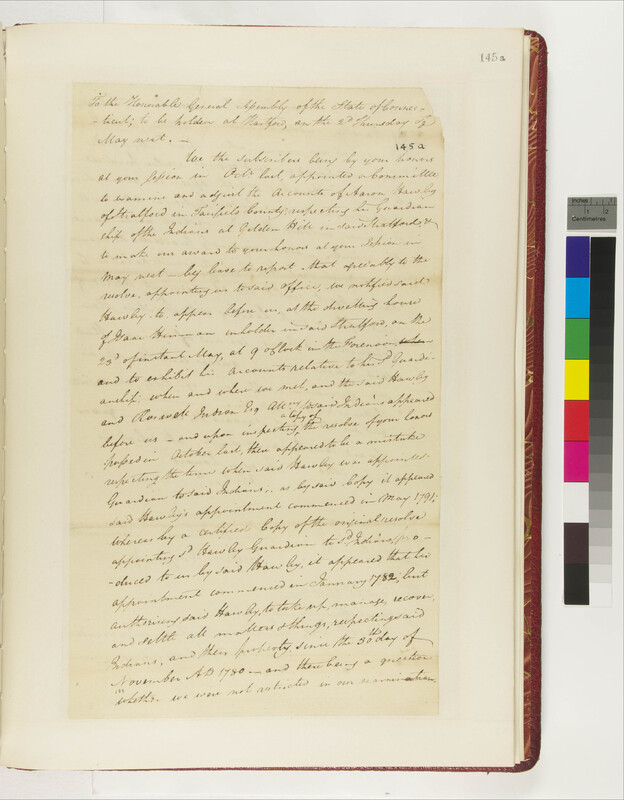 145a
To the Honorable General Assembly of the State of Connec-
-ticut, to be holden at Hartford, on the 2d Thursday of
May next. —
145a
We the subscribers being by your honors
at your session in Octr. last, appointed a Committee
to examine and adjust the Accounts of Aaron Hawley
of Stratford in Fairfield County, respecting his Guardian
ship of the Indians at Golden Hill in said Stratford, &
to make our award to your honors at your session in
May next — beg leave to report, that agreeably to the
resolve, appointing us to said office, we notified said
Hawley to appear before us, at the dwelling house
of Isaac Hinman inholder in said Stratford, on the
23d of instant May, at 9 o'Clock in the Forenoon
and to exhibit his Accounts relative to his sd. Guardi-
anship, when and where we met, and the said Hawley
and Roswell Judson Esq. Atty. for said Indians appeared
before us — and upon inspecting a copy of the resolve of your honors
passed in October last, there appeared to be a mistake
respecting the time when said Hawley was appointed
Guardian to said Indians, as by said Copy it appeared
said Hawley's appointment commenced in May 1791;
whereas by a certified Copy of the original resolve
appointing sd. Hawley Guardian to sd. Indians, pro-
-duced to us by said Hawley, it appeared that his
appointment commenced in January 1782, but
authorising said Hawley, to take up, manage, recover,
and settle all matters & things, respecting said
Indians, and their property, since the 30th day of
November AD 1780 — and there being a question
whether we were not restricted in our examination